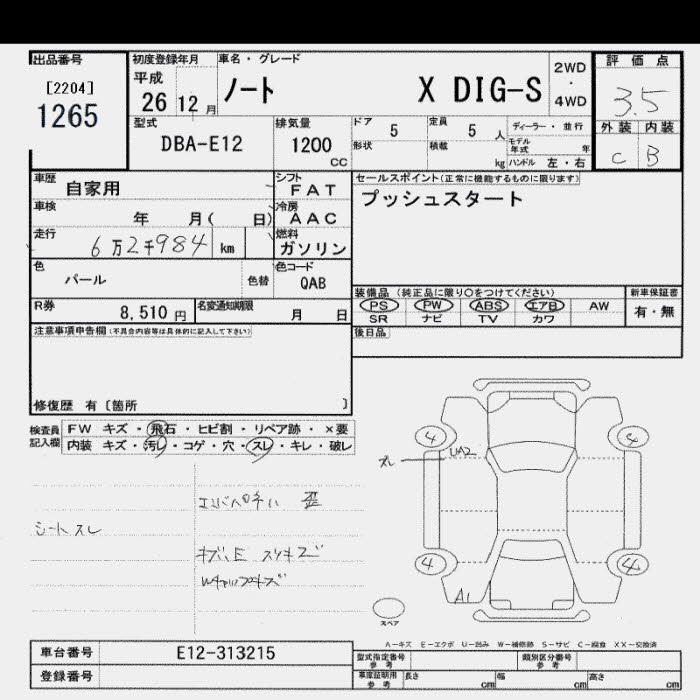 出品番号
[2204]
1265
初度登録年月
平成
26 12 月
車名・グレード
ノート X DIG-S
2WD
・
4WD
評価点
3.5
外装 内装
C B
型式
DBA-E12
排気量
1200
CC
ドア 5
定員 5 人
形状
積載 kg
ディーラー・並行
モデル年式 年
ハンドル 左・右
車歴 自家用
シフト
FAT
車検 年 月( 日)
冷房
AAC
走行 6万2千984 km
燃料
ガソリン
色 パール 色替
色コード
QAB
R券 8,510 円
名変通知期限 月 日
セールスポイント(正常に機能するものに限ります)
プッシュスタート
装備品(純正品に限り○をつけてください)
PS PW ABS エアB AW
SR ナビ TV カワ
新車保証書
有・無
後日品
注意事項申告欄(不具合内容等は具体的に記入して下さい)
修復歴 有〔箇所 〕
検査員記入欄
FW キズ・飛石・ヒビ割・リペア跡・×要
内装 キズ・汚レ・コゲ・穴・スレ・キレ・破レ
シートスレ
キズ、E スリキズ
Wチャップキズ
スレ
4
4
4
4
UA2
A1
スペア
A-キズ E-エクボ U-凹み W-補修跡 S-サビ C-腐食 XX-交換済
車台番号 E12-313215
登録番号
型式指定番号
参考
類別区分番号
参考
車庫証明用
参考
長さ cm
幅 cm
高さ cm